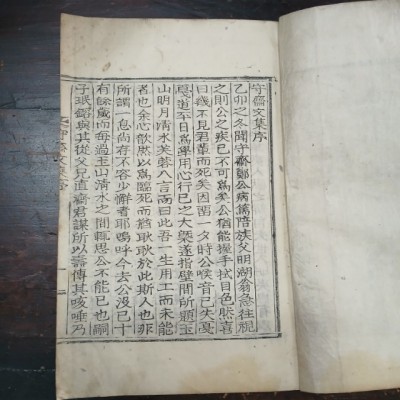 守齋文集序
乙卯之冬聞守齋鄭公病篤陪族父明湖翁急往視
之則公之疾已不可爲矣公猶能擧手拭目色然喜
曰幾不見君輩而死矣因留一夕時公喉音已失戛
戛道平日爲學用心行已大槩遂指壁間所題玉
山明月淸水芙蓉八言而曰此吾一生用工而未能
者也余心歎然以爲臨死而猶耿耿於此斯人也非
所謂一息尙存不容少懈者耶嗚呼今去公沒已十
有餘歲而每過玉山淸水之間輒思公不能已也嗣
子珉與其從父兄直齋君謀所以壽傳其咳唾乃